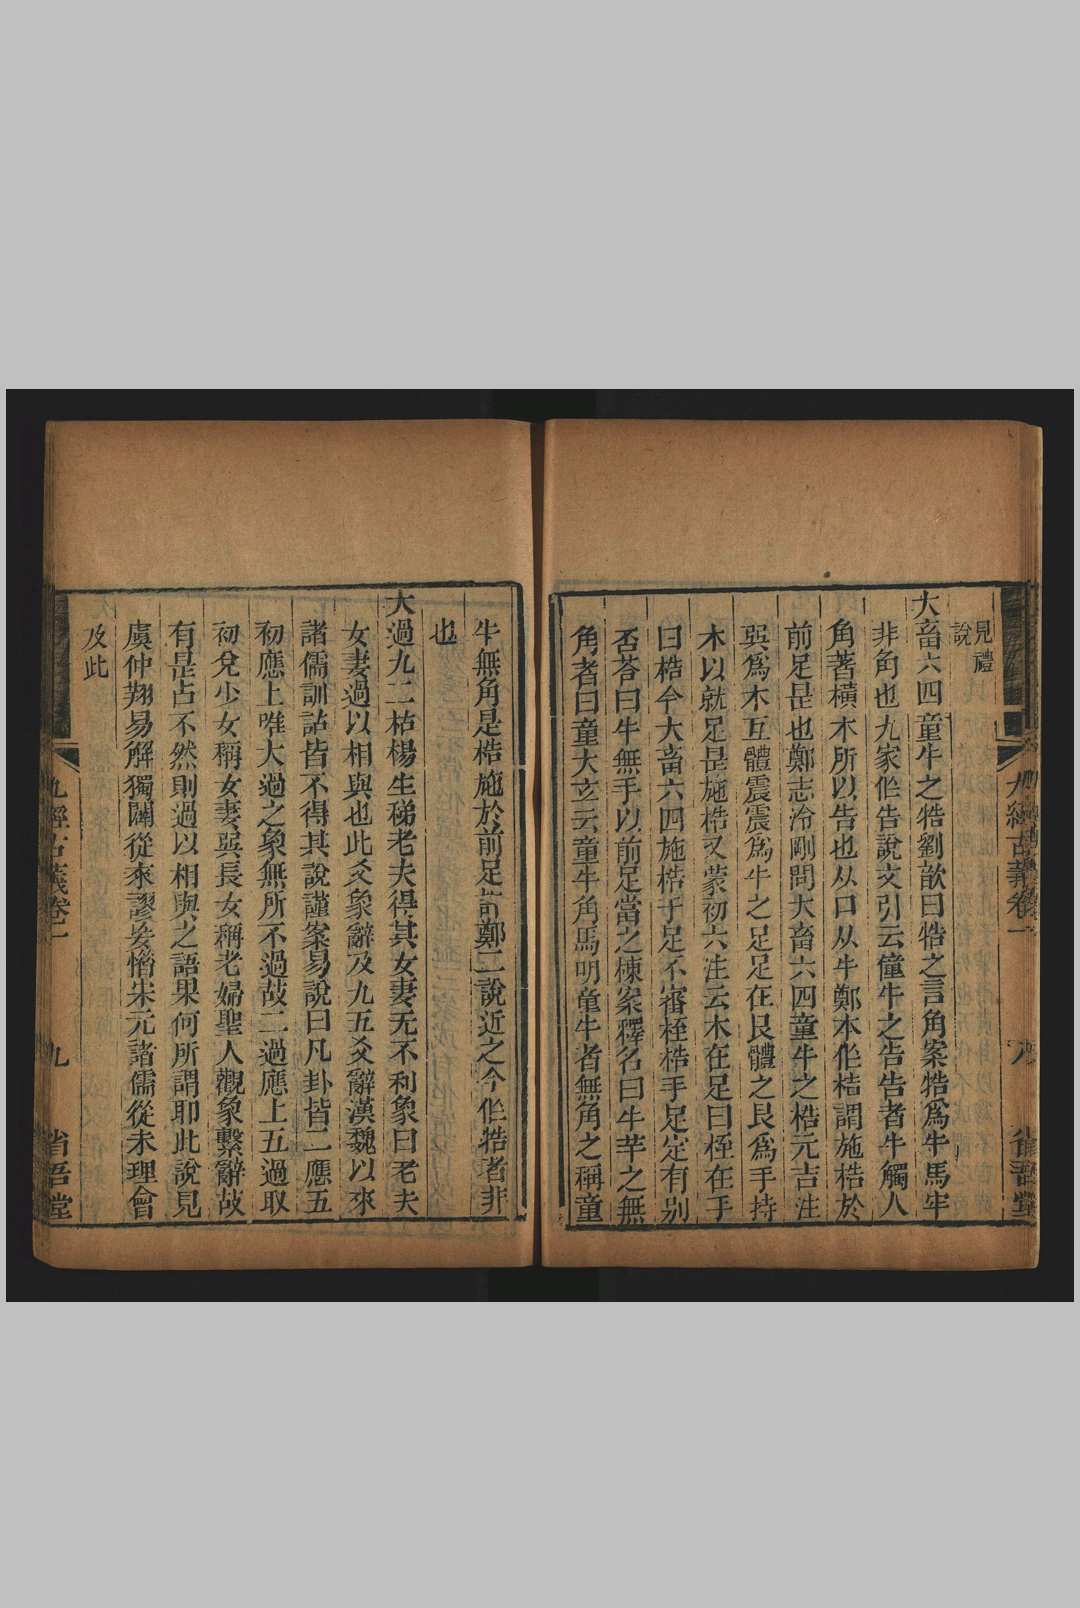 見禮
說
大畜六四童牛之牿劉歆曰牿之言角案牿爲牛馬牢
非角也九家作告說文引云僮牛之告告者牛觸人
角著橫木所以告也从口从牛鄭本作梏謂施梏於
前足是也鄭志泠剛問大畜六四童牛之梏元吉注
巽爲木互體震震爲牛之足足在艮體之艮爲手持
木以就足是施梏又蒙初六注云木在足曰桎在手
曰梏今大畜六四施梏于足不審桎梏手足定有別
否荅曰牛無手以前足當之棟案釋名曰牛羊之無
角者曰童大玄云童牛角馬明童牛者無角之稱童
九經古義卷一
八
省吾堂
牛無角是梏施於前足許鄭二說近之今作牿者非
也
大過九二枯楊生稊老夫得其女妻无不利象曰老夫
女妻過以相與也此爻象辭及九五爻辭漢魏以來
諸儒訓詁皆不得其說謹案易說曰凡卦皆二應五
初應上唯大過之象無所不過故二過應上五過取
初兌少女稱女妻巽長女稱老婦聖人觀象繫辭故
有是占不然則過以相與之語果何所謂耶此說見
虞仲翔易解獨闢從來謬妄惜宋元諸儒從未理會
及此
九經古義卷一
九
省吾堂